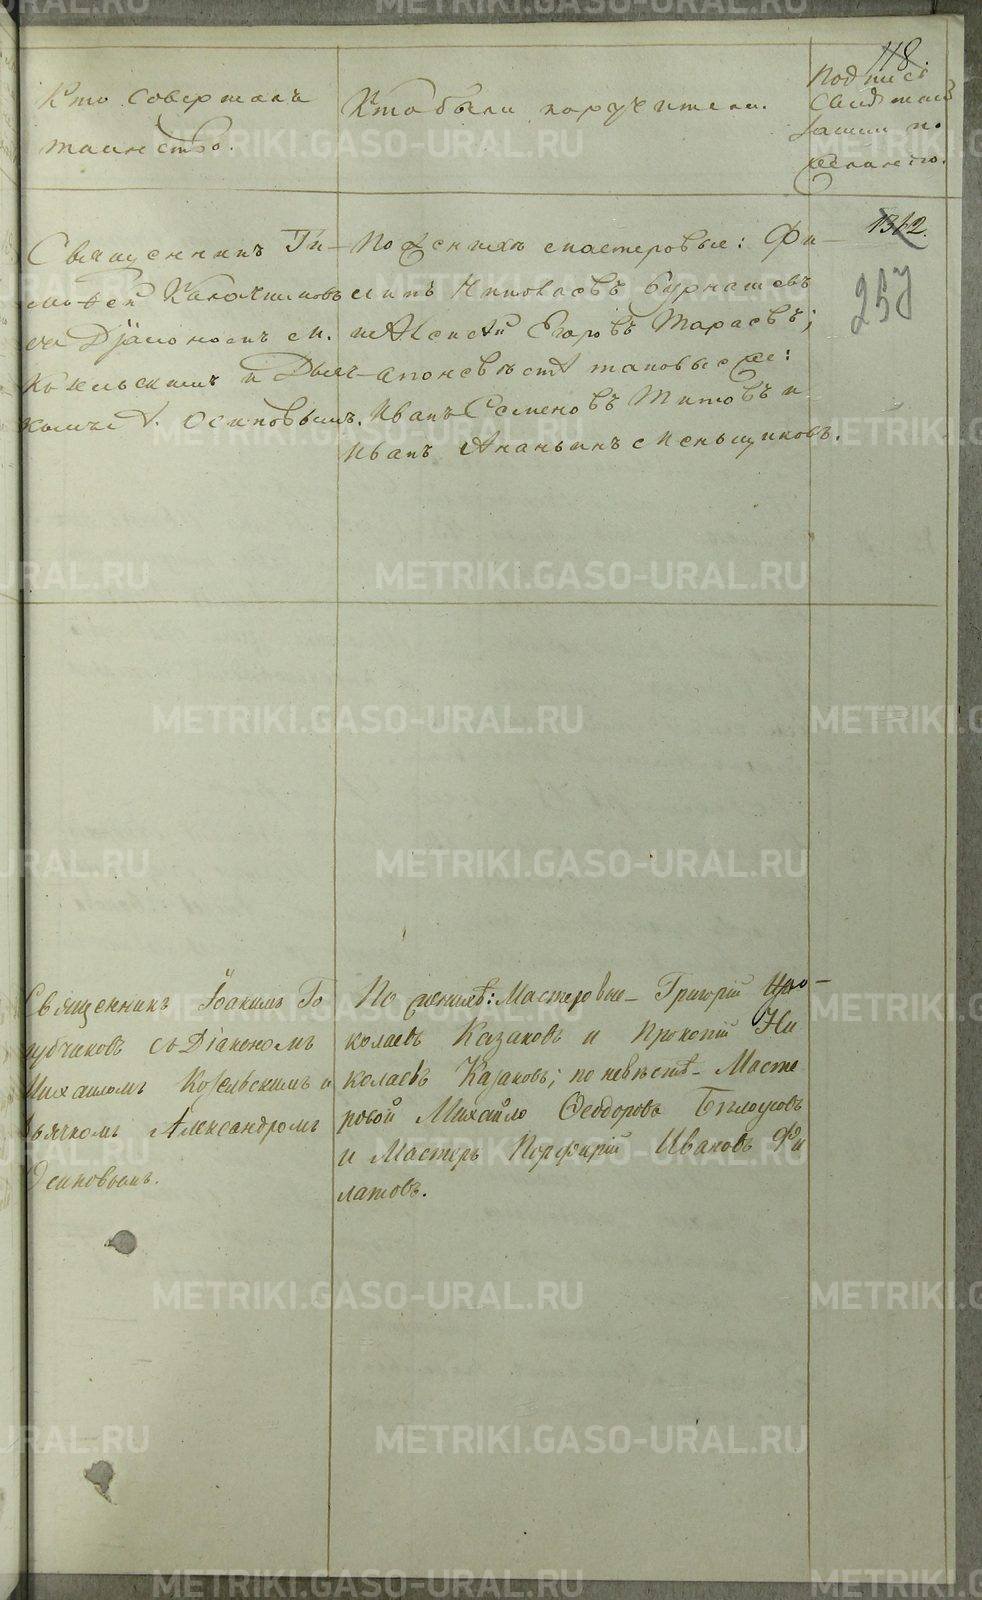 118.
Кто совершалъ
таинство.
Кто были поручители.
Подпись
свидѣтелей
записи по
желанію.
1312.
257
Священникъ Ти-
мофей
съ Діакономъ М.
Козельскимъ и Дьяч-
комъ А. Осиповымъ.
По женихѣ мастеровые: Фи-
липъ Николаевъ Бурнашевъ
и Алексѣй Егоровъ Тарасовъ;
а по невѣстѣ таковые же:
Иванъ Семеновъ Титовъ и
Иванъ Ананьинъ Меньщиковъ.
Священникъ Іоакимъ Го
лубчиковъ съ Діакономъ
Михаиломъ Козельскимъ и
дьячкомъ Александромъ
Осиповымъ.
По женихѣ: Мастеровые – Григорій Ни-
колаевъ Казаковъ и Прокопій Ни
колаевъ Казаковъ; по невѣстѣ – Масте
ровой Михайло Феодоровъ Бѣлоусовъ
и Мастеръ Порфирій Ивановъ Фи
латовъ.
METRIKI.GASO-URAL.RU